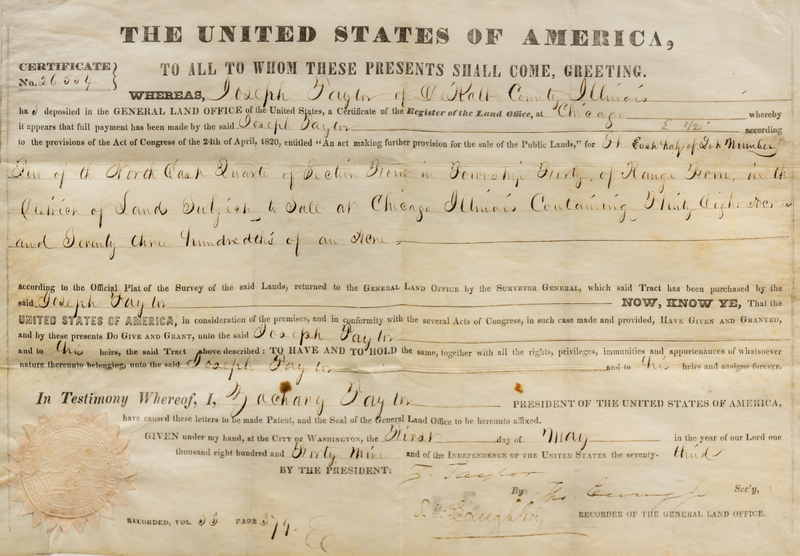 THE UNITED STATES OF AMERICA,
CERTIFICATE
No. 26.554
TO ALL TO WHOM THESE PRESENTS SHALL COME, GREETING.
WHEREAS, Joseph Taylor of DeKalb County Illinois
ha s deposited in the GENERAL LAND OFFICE of the United States, a Certificate of the Register of the Land Office, at Chicago whereby
it appears that full payment has been made by the said Joseph Taylor E ½ according
to the provisions of the Act of Congress of the 24th of April, 1820, entitled “An act making further provision for the sale of the Public Lands,” for East half of Lot Number
of the North East Quarter of Section in Township Forty, of Range in the
District of Land Subject to Sale at Chicago Illinois Containing Eight Acres
and Seventy three hundredths of an Acre
according to the Official Plat of the Survey of the said Lands, returned to the GENERAL LAND OFFICE by the SURVEYOR GENERAL, which said Tract has been purchased by the
said Joseph Taylor NOW, KNOW YE, That the
UNITED STATES OF AMERICA, in consideration of the premises, and in conformity with the several Acts of Congress, in such case made and provided, HAVE GIVEN AND GRANTED,
and by these presents DO GIVE AND GRANT, unto the said Joseph Taylor
and to his heirs, the said Tract above described: TO HAVE AND TO HOLD the same, together with all the rights, privileges, immunities and appurtenances of whatsoever
nature thereunto belonging, unto the said Joseph Taylor and to his heirs and assigns forever.
In Testimony Whereof, I, Zachary Taylor PRESIDENT OF THE UNITED STATES OF AMERICA,
have caused these letters to be made Patent, and the Seal of the General Land Office to be hereunto affixed.
GIVEN under my hand, at the CITY OF WASHINGTON, the First day of May in the year of our Lord one
thousand eight hundred and Forty Nine and of the INDEPENDENCE OF THE UNITED STATES the seventy- third
BY THE PRESIDENT: Z. Taylor
By Tho. Sec'y,
S. H. Laughlin RECORDER OF THE GENERAL LAND OFFICE.
RECORDED, VOL. 53 PAGE 379.